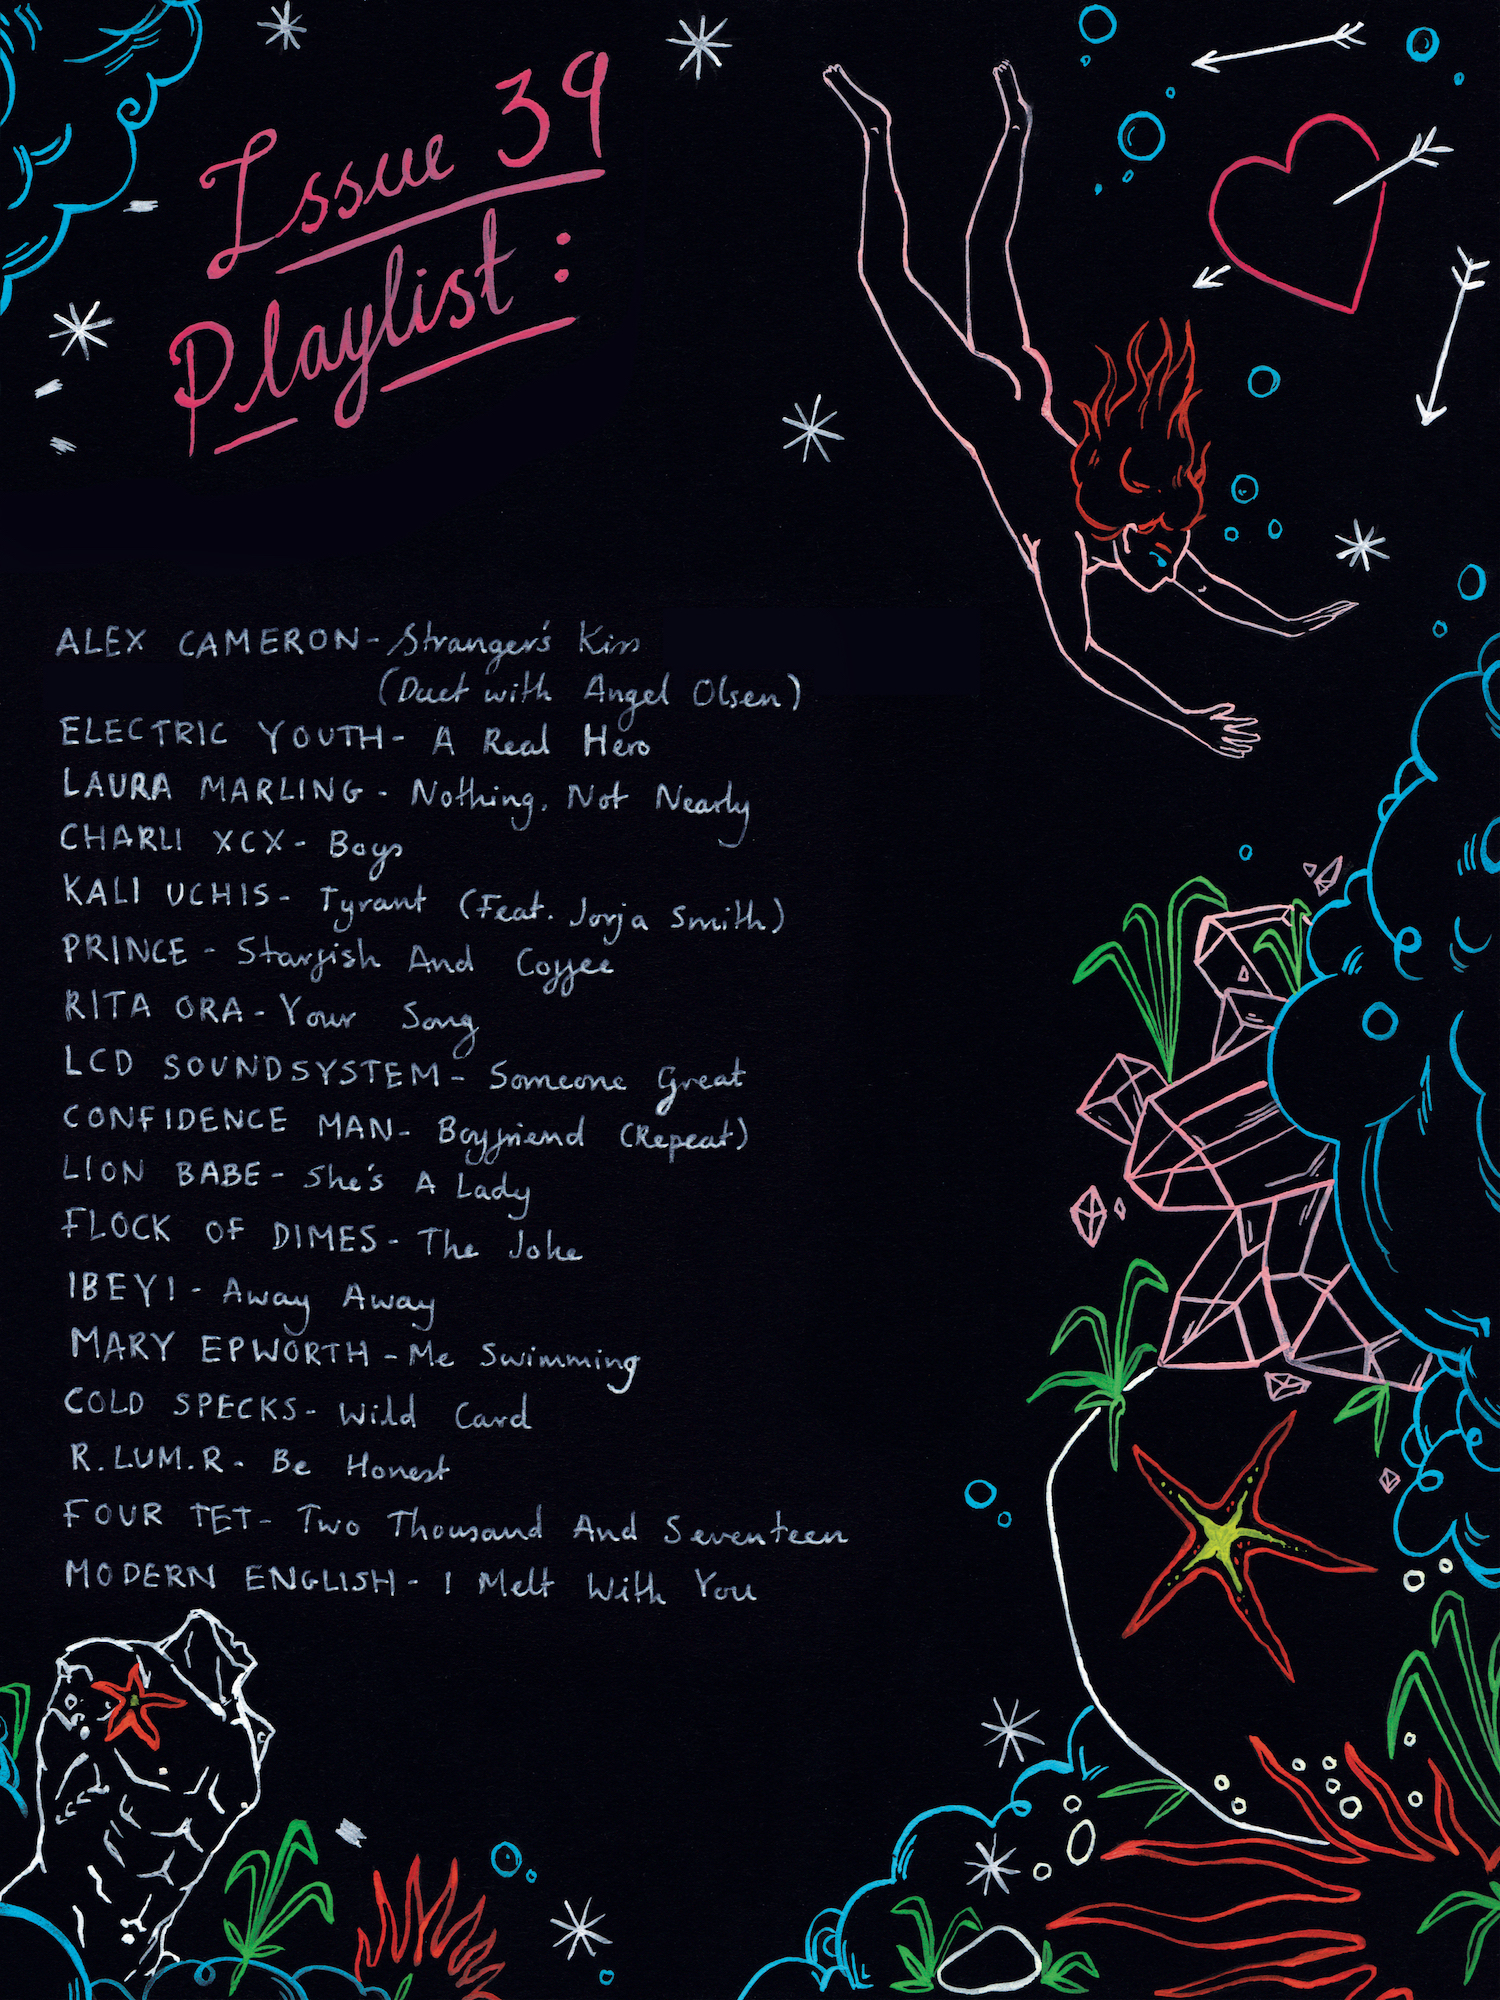 Issue 39
Playlist:
ALEX CAMERON- Stranger's Kiss
(Duet with Angel Olsen)
ELECTRIC YOUTH- A Real Hero
LAURA MARLING- Nothing, Not Nearly
CHARLI XCX- Boys
KALI UCHIS- Tyrant (Feat. Jorja Smith)
PRINCE- Starfish And Coffee
RITA ORA- Your Song
LCD SOUNDSYSTEM- Someone Great
CONFIDENCE MAN- Boyfriend (Repeat)
LION BABE- She's A Lady
FLOCK OF DIMES- The Joke
IBEYI- Away Away
MARY EPWORTH- Me Swimming
COLD SPECKS- Wild Card
R.LUM.R- Be Honest
FOUR TET- Two Thousand And Seventeen
MODERN ENGLISH- I Melt With You